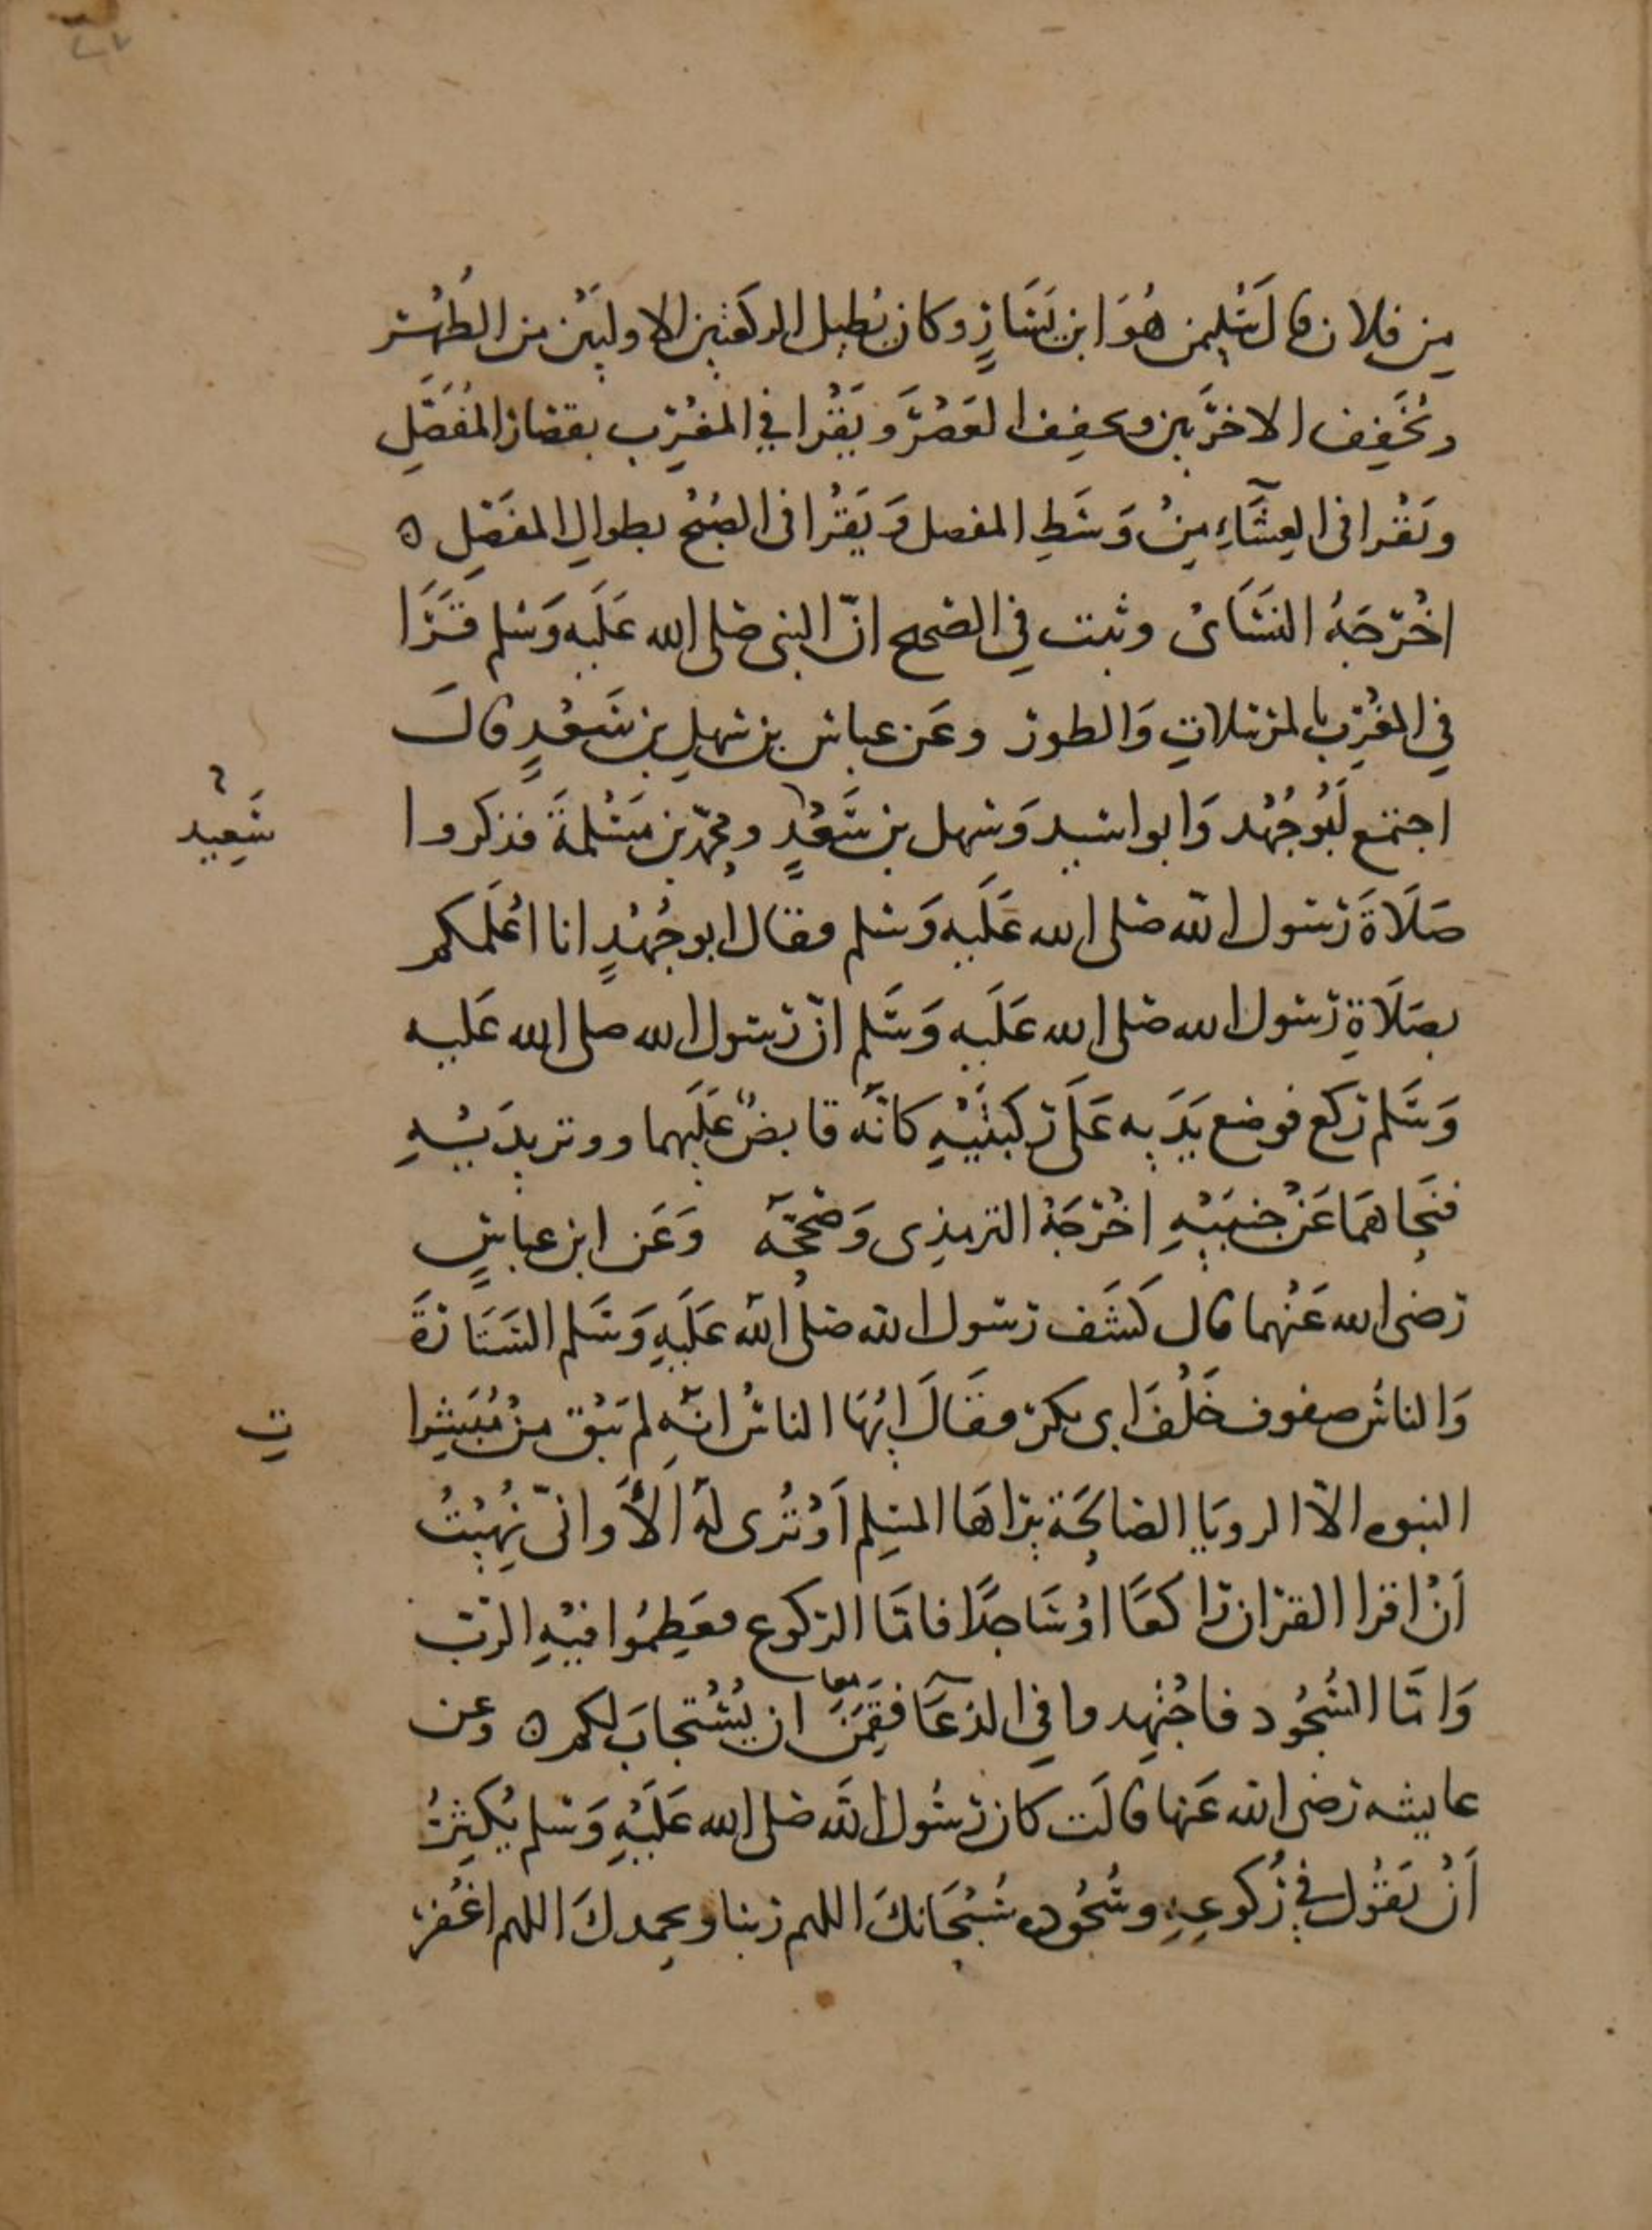 من فلان قال سليمن هُوَ ابن يَسَارٍ وكان يُطيل الركعتين الاوليَيْن من الظهْر
ويُخَفِف الاخرَيين ويخفِف العَصْرَ ويَقْرا في المغْرِب بقصار المُفَصَّلِ
ويَقْرا في العِشَآءِ مِنْ وَسَطِ المفصل وَيَقْرا في الصُبْحْ بطوالِ المفَصَّلِ ه
اخْرَجَهُ النَسَائ وثبت في الصحيح انّ النبي صلى الله عَلَيه وَسلم قَرَا
في المغْرِب بالمرسَلاتِ وَالطور وعَن عباس بن سهلِ بن سَعْدٍ قالَ
اجتمَع ابُو جُهْد وَابو اسيد وَسهل بن سَعْدٍ ومحمّد بن مَسْلمةَ فذكَروا
سَعِيد
صَلَاةَ رَسول الله صلى الله عَلَيه وَسلم فقال ابو جُهْدٍ انا اعْلَمكم
بصَلَاةِ رَسول الله صلى الله عَلَيه وَسَلم انّ رَسول الله صلى الله عَليه
وَسَلم ركع فوضع يَدَيه عَلَى ركبتَيْهِ كانّه قابضٌ عَلَيهما ووتر يدَيْهِ
فنَحاهمَا عَنْ جنبَيْهِ اخْرَجَهُ الترمذِى وَصححَّه وَعَن ابن عباسٍ
رَضى الله عَنْهما قال كَشَف رَسول الله صلى الله عَلَيهِ وَسَلم السَتَارَةَ
وَالناسُ صفوف خَلْفَ ابى بكر فقَالَ ايهَا الناسُ انّه لم يَبْق مِنْ مُبَشِرا
تِ
النبوه الاّ الرويَا الصالحَة يرَاهَا المسِلم اَوْ تُرى لهُ الَا وَانّى نُهِيْتُ
اَنْ اقرا القرَان رَاكعًا اوْ سَاجدًا فامّا الركوع فعَظِمُوا فيْهِ الرّبَ
وَامّا السُجُود فاجْتهِدوا في الدعَآ فقَمَنٌ ان يُسْتجابَ لكم ه وعن
معا
عايشه رَضى الله عَنها قالَت كان رَسُول الله صلى الله عَلَيْهِ وَسلم يُكْثِرُ
اَنْ يَقوُل في رُكوعِهِ وسُجُوده سُبْحَانكَ اللهم رَبنا وبحمدكَ اللهم اغْفر